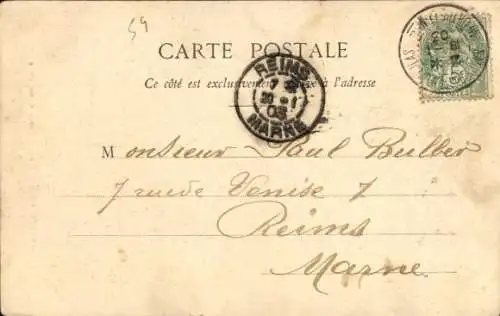 54
CARTE POSTALE
Ce côté est exclusivement à l'adresse
REIMS
MARNE
Monsieur Paul Buller
7 rue de Venise 7
Reims
Marne